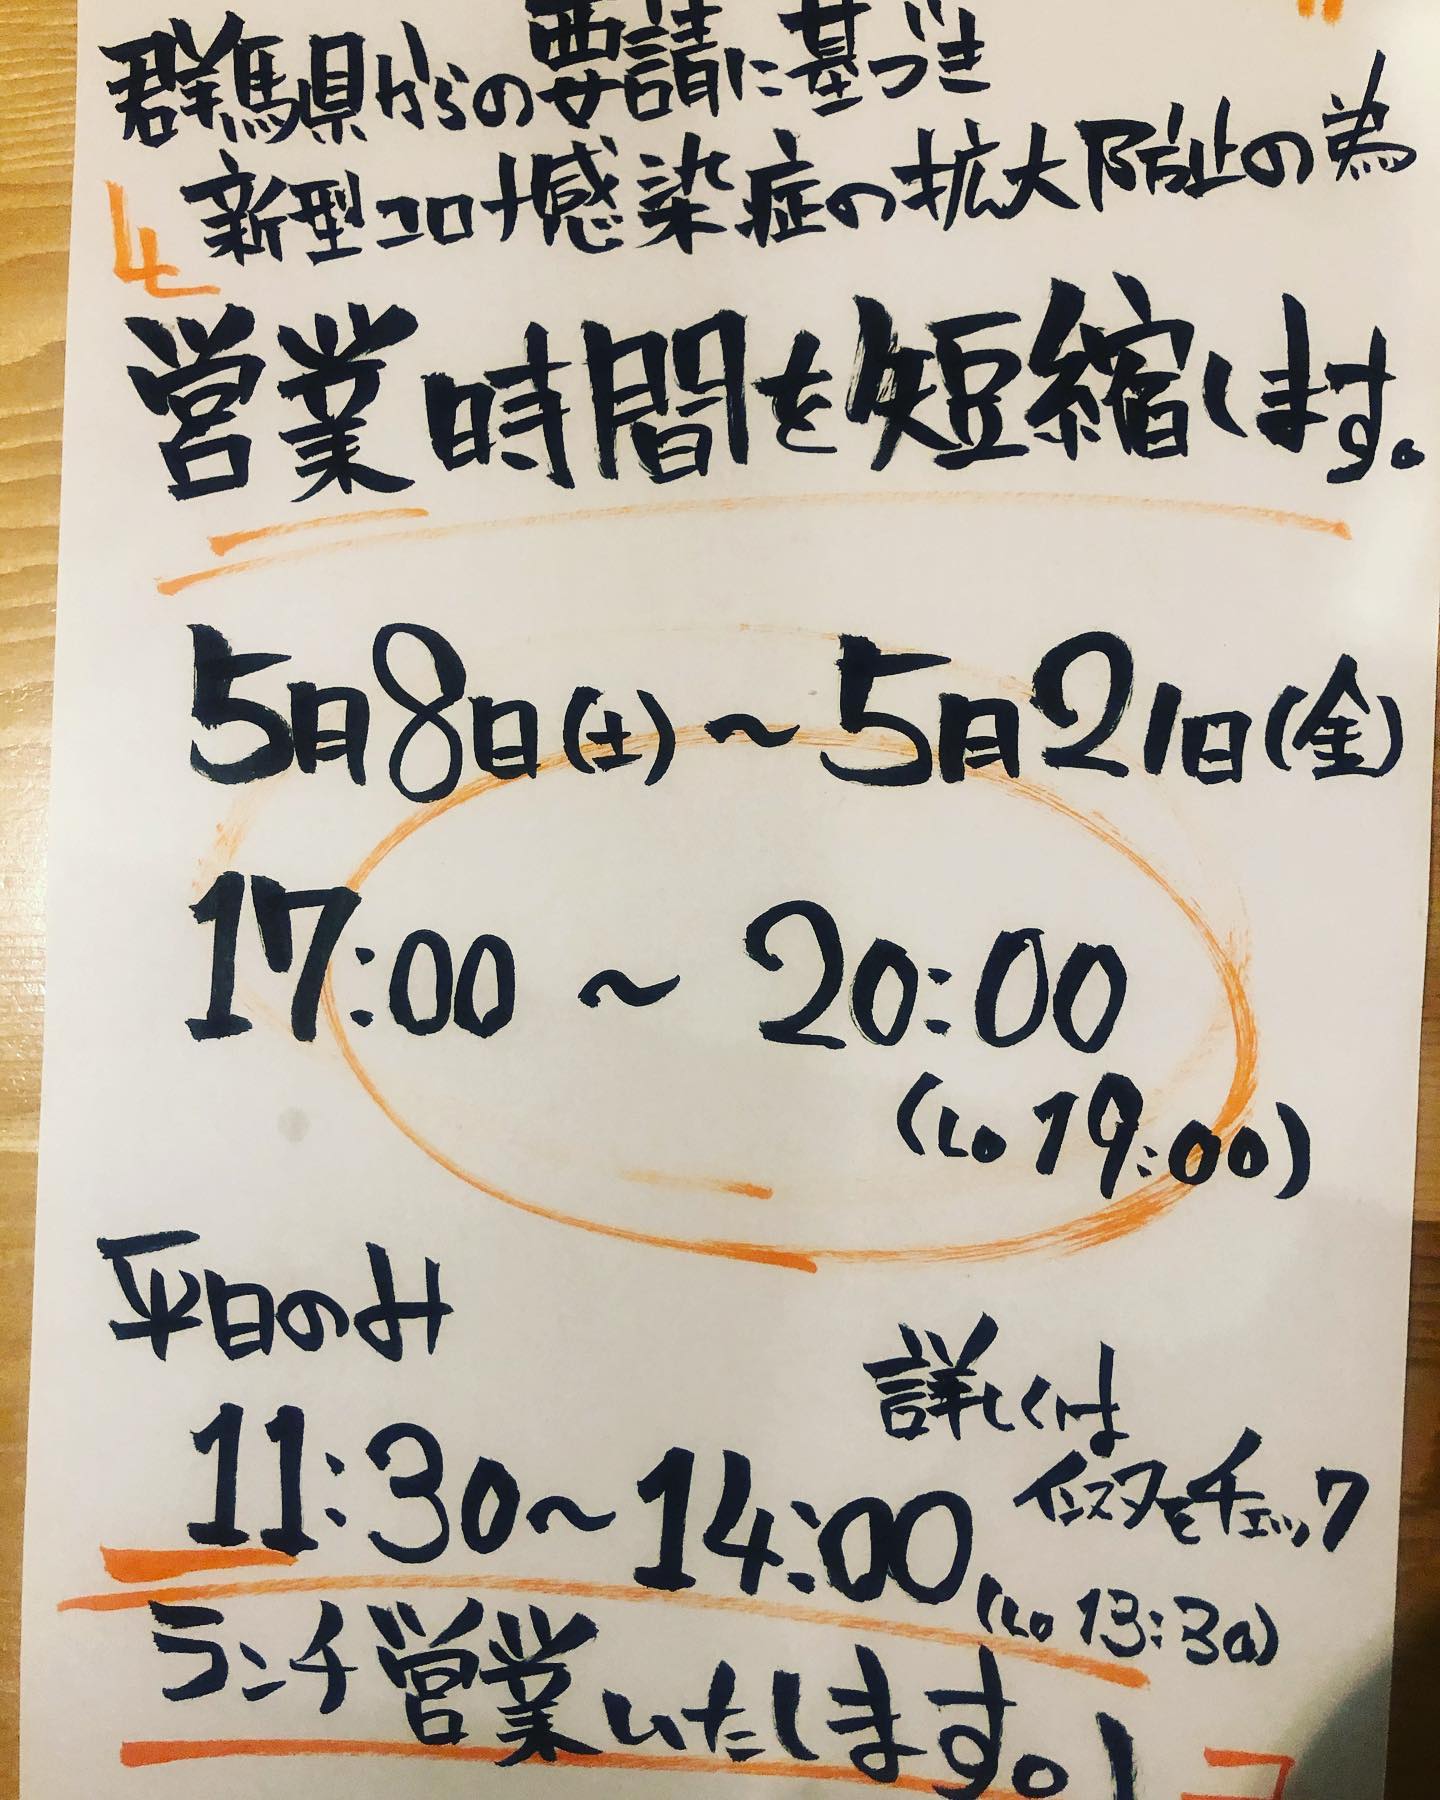 群馬県からの要請に基づき
新型コロナ感染症の拡大防止の為
営業時間を短縮します。
5月8日(土)〜5月21日(金)
17:00 〜 20:00
(Lo 19:00)
平日のみ
11:30〜14:00
(Lo 13:30)
詳しくは
インスタをチェック
ランチ営業いたします。